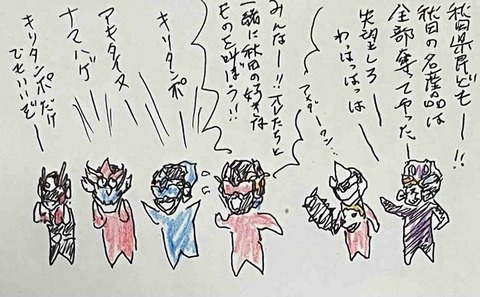 秋田県民どもー!!
秋田の名産品は
全部奪ってやった
失望しろー
わっはっはっは
みんなー!!オレたちと
一緒に秋田の好きな
ものを呼ぼうう!!
キリタンポ
アキタイヌ
ナマハゲ
キリタンポだけ
でもいいぞー